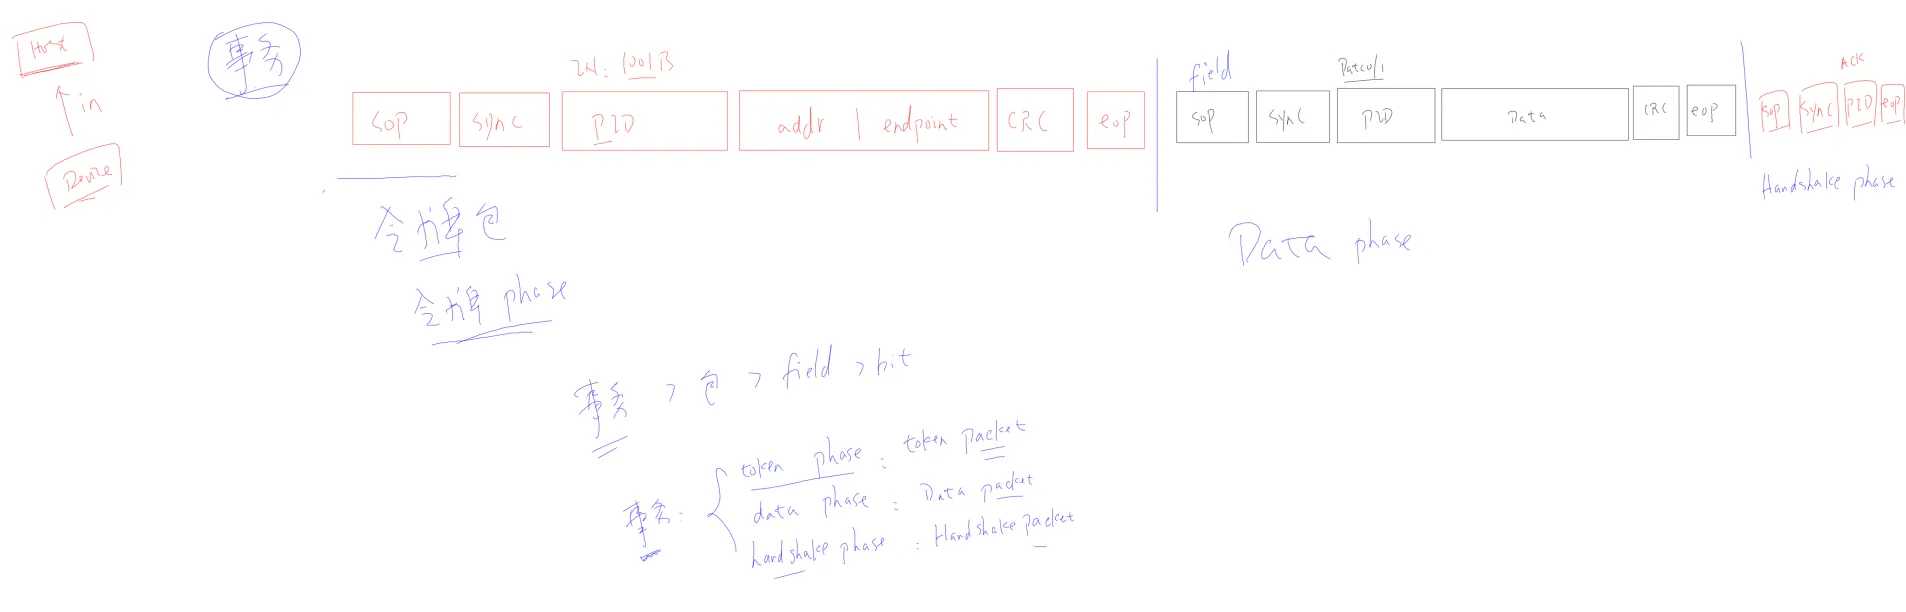 Host
in
Device
事务
IN: 1001B
SOP SYNC PID addr | endpoint CRC eop
令牌包
令牌 phase
field
Data0/1
SOP SYNC PID Data CRC eop
Data phase
ACK
SOP SYNC PID eop
Handshake phase
事务 > 包 > field > bit
事务:
token phase : token packet
data phase : Data packet
handshake phase : Handshake packet